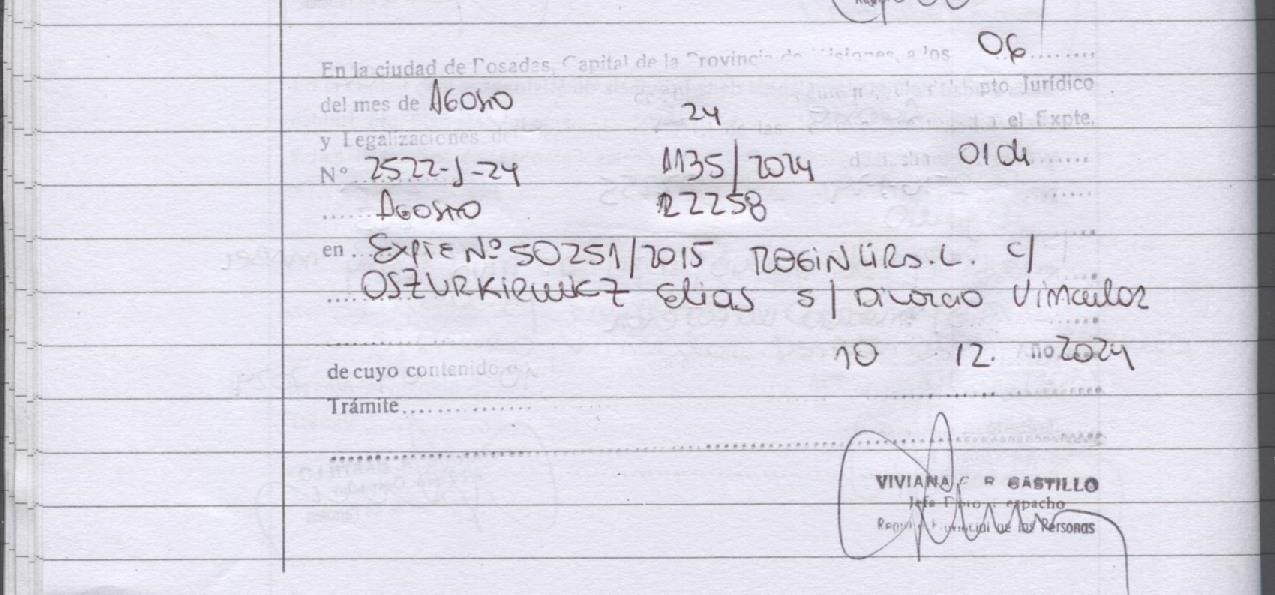 En la ciudad de Posadas, Capital de la Provincia de Misiones, a los 06
del mes de Agosto 24 pto Jurídico
y Legalizaciones el Expte.
Nº 2522-J-24 1135/2024 0104
Agosto 22258
en Expte Nº 50251/2015 C/
OSZURKIEWICZ Elias S/ Divorcio Vincular
de cuyo contenido 10 12. Año 2024
Trámite
VIVIANA R CASTILLO
Jefa Despacho
Registro Provincial de las Personas